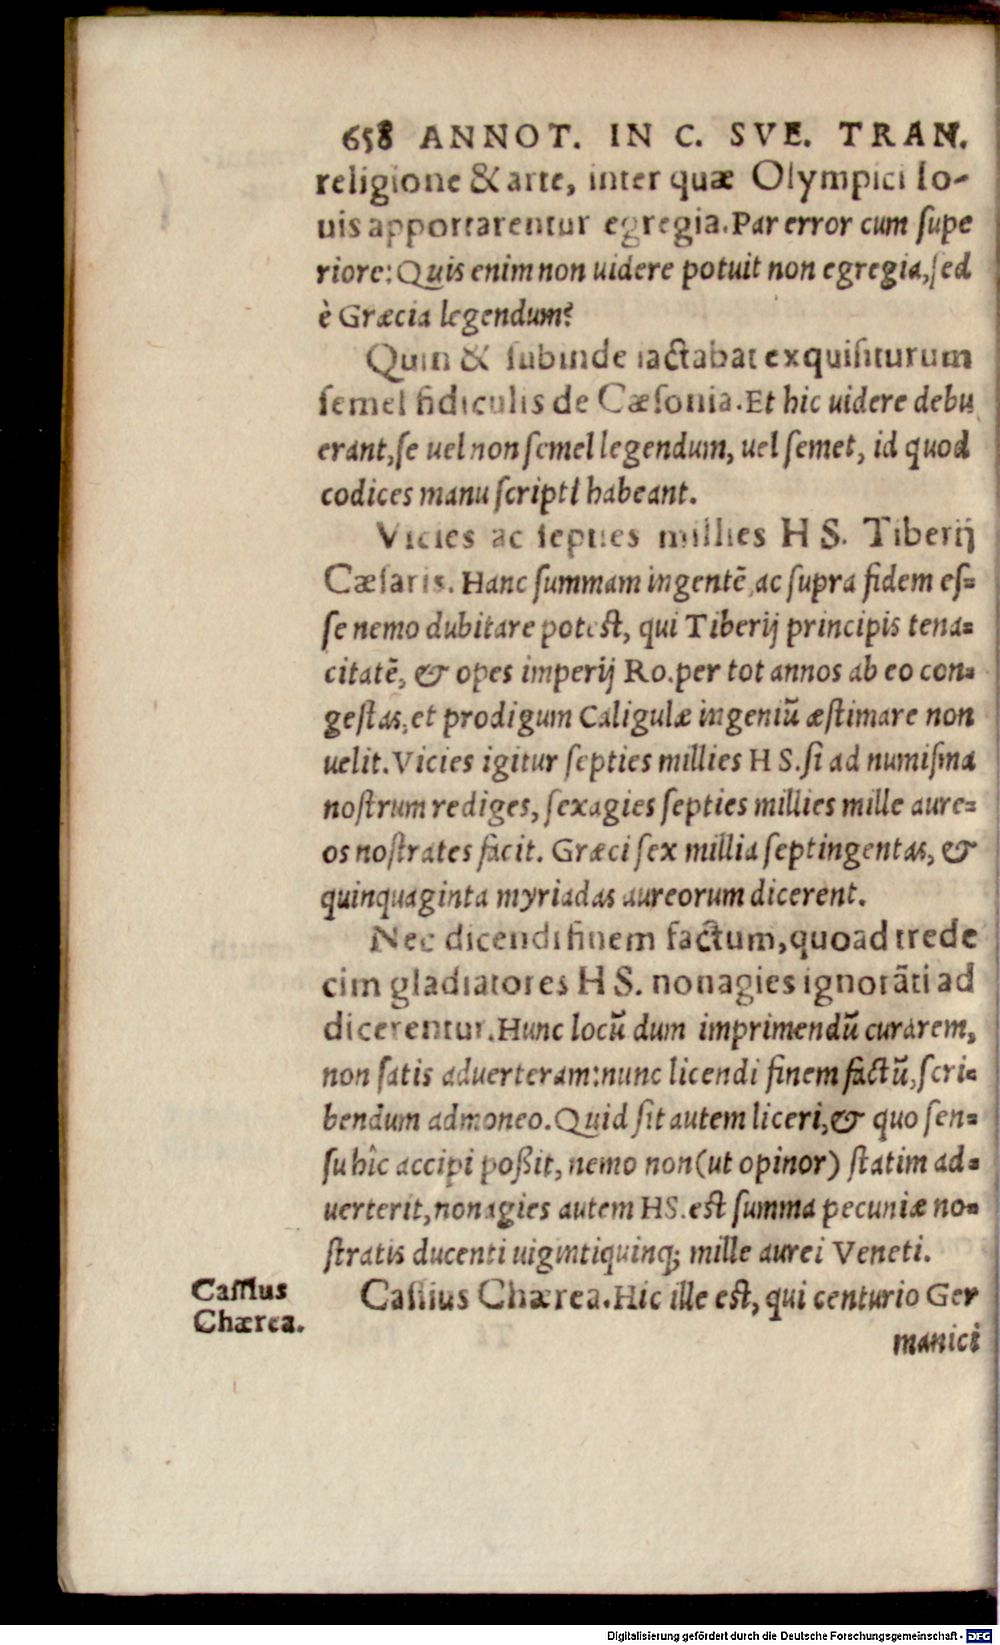 658 ANNOT. IN C. SVE. TRAN.
religione & arte, inter quæ Olympici Io-
uis apportarentur egregia. Par error cum supe
riore: Quis enim non uidere potuit non egregia, sed
è Græcia legendum?
Quin & subinde iactabat exquisiturum
semel fidiculis de Cæsonia. Et hic uidere debu
erant, se uel non semel legendum, uel semet, id quod
codices manu scripti habeant.
Vicies ac septies millies H S. Tiberij
Cæsaris. Hanc summam ingentē, ac supra fidem es=
se nemo dubitare potest, qui Tiberij principis tena=
citatē, & opes imperij Ro. per tot annos ab eo con=
gestas, et prodigum Caligulæ ingeniū æstimare non
uelit. Vicies igitur septies millies H S. si ad numisma
nostrum rediges, sexagies septies millies mille aure=
os nostrates facit. Græci sex millia septingentas, &
quinquaginta myriadas aureorum dicerent.
Nec dicendi finem factum, quoad trede
cim gladiatores H S. nonagies ignorāti ad
dicerentur. Hunc locū dum imprimendū curarem,
non satis aduerteram: nunc licendi finem factū, scri=
bendum admoneo. Quid sit autem liceri, & quo sen=
su hîc accipi poßit, nemo non (ut opinor) statim ad=
uerterit, nonagies autem HS. est summa pecuniæ no=
stratis ducenti uigintiquinq; mille aurei Veneti.
Cassius
Chærea.
Cassius Chærea. Hic ille est, qui centurio Ger
manici
Digitalisierung gefördert durch die Deutsche Forschungsgemeinschaft - DFG